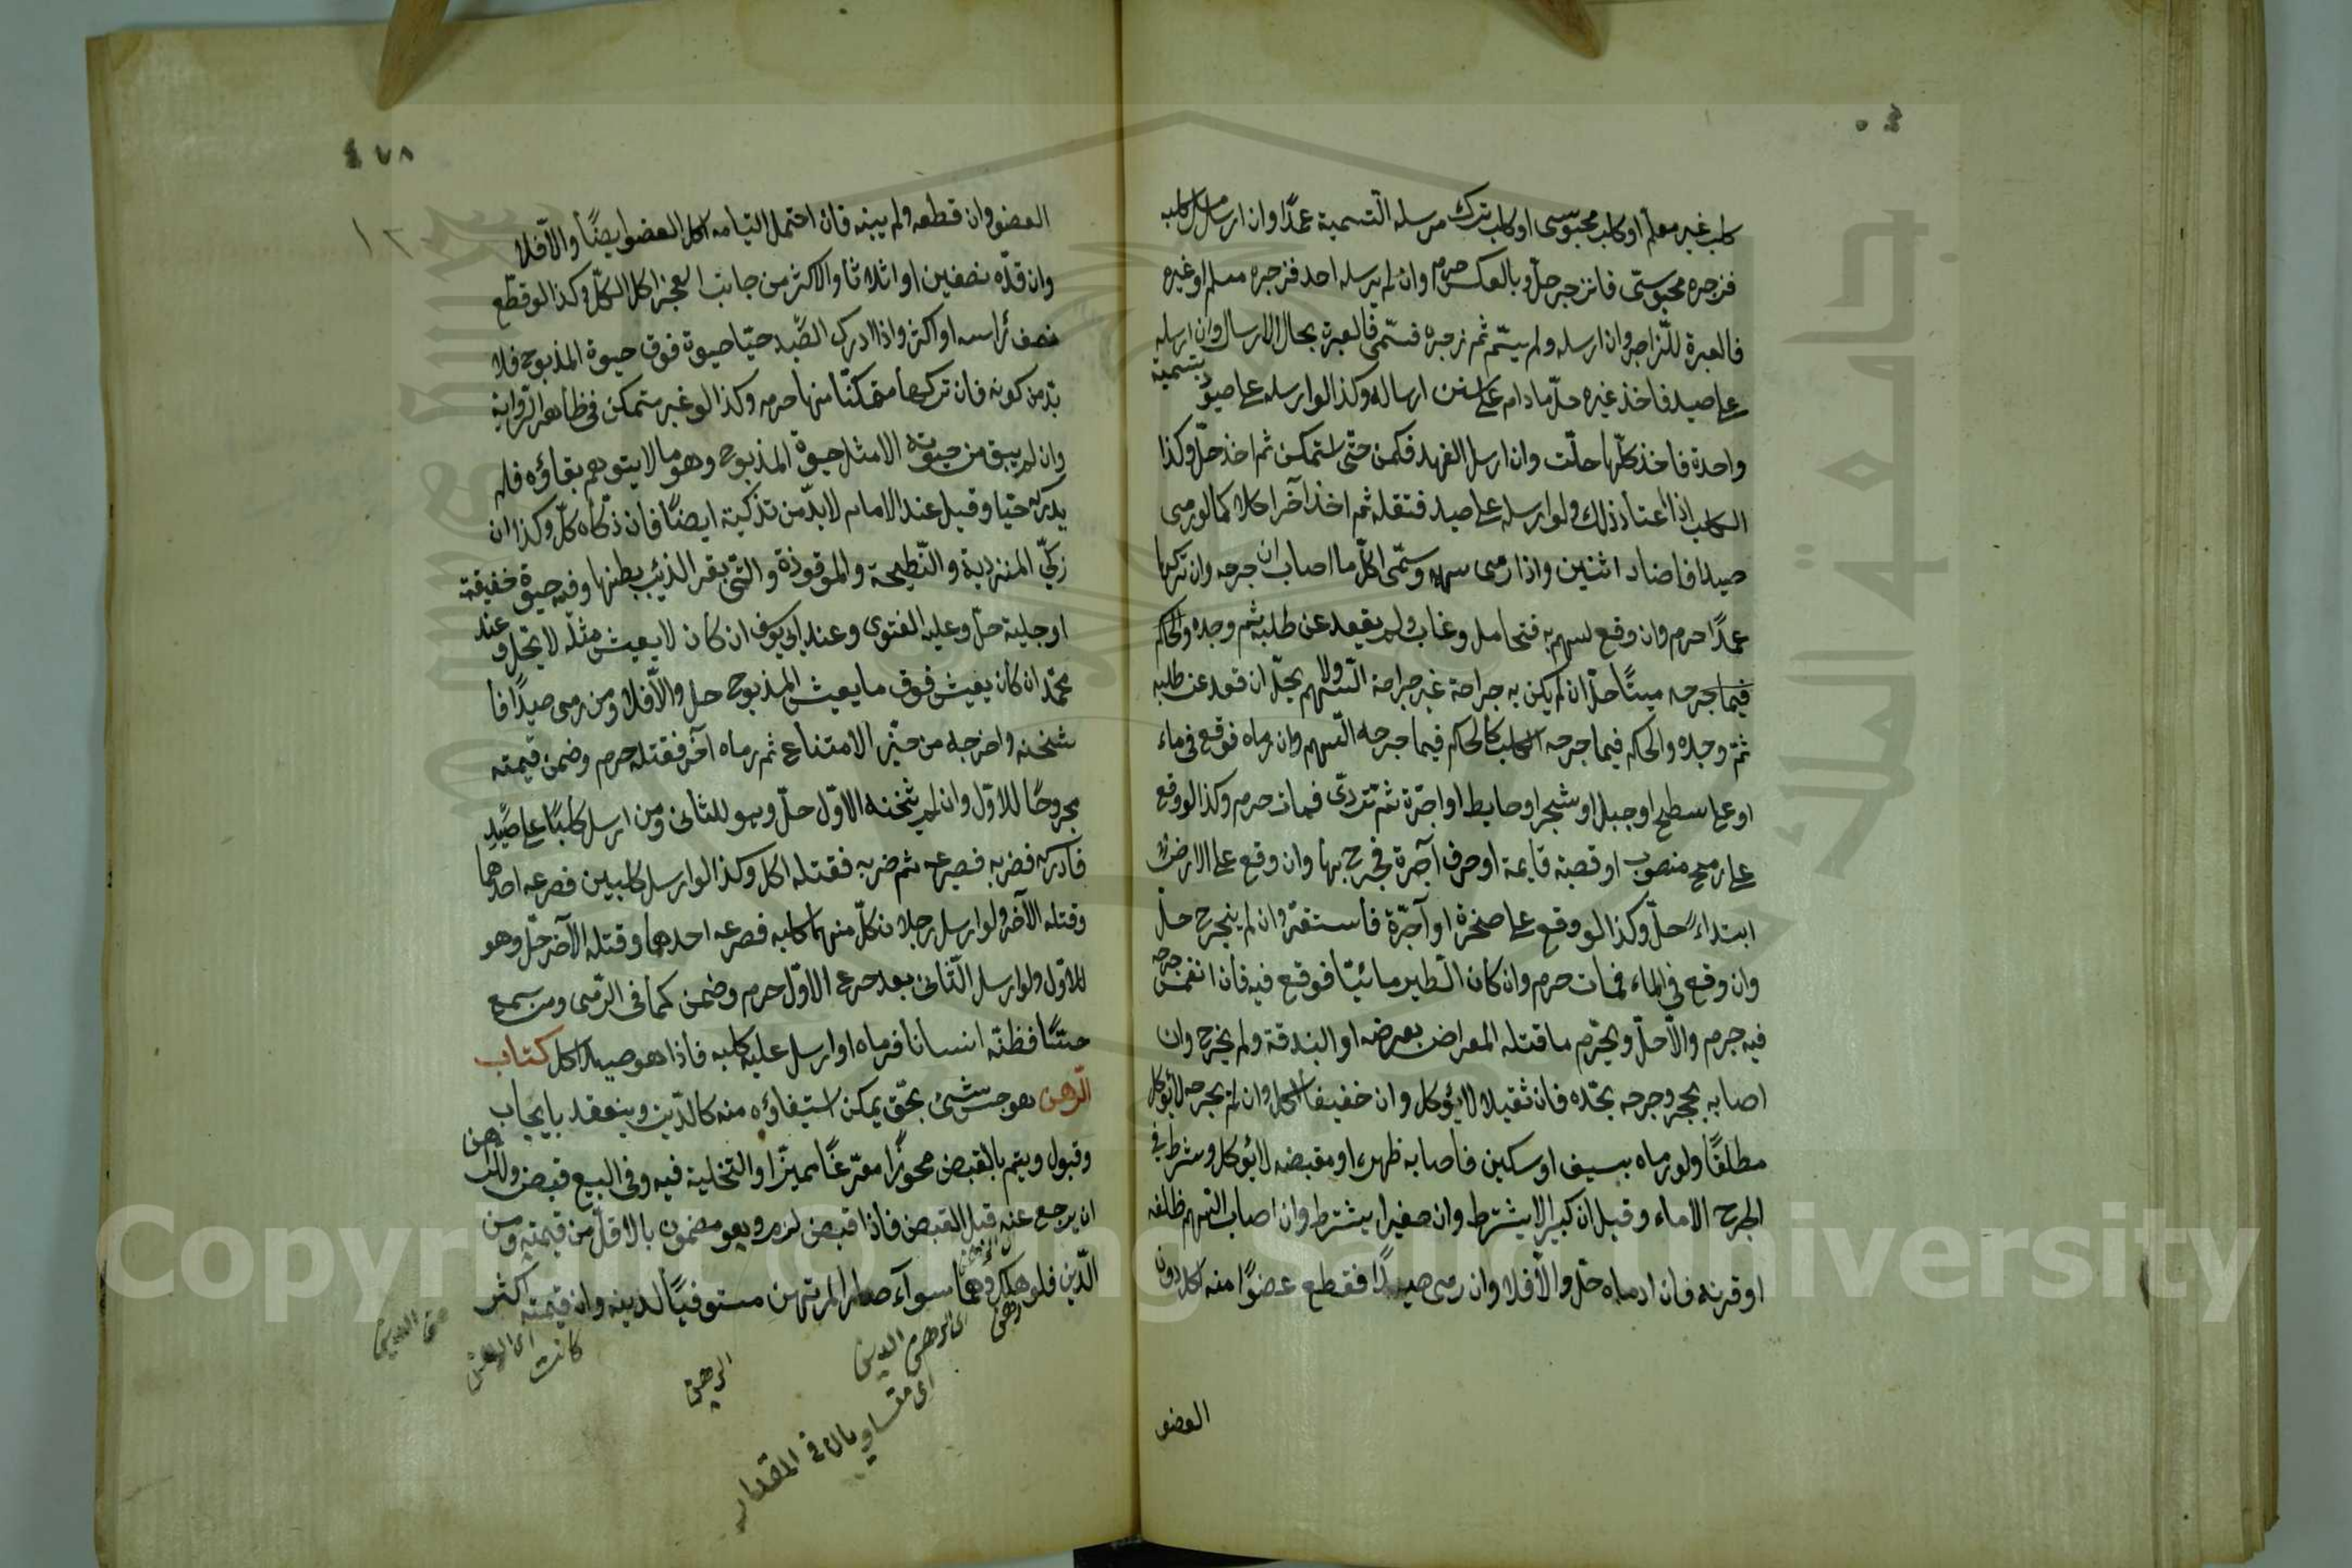 كلب غير معلم او كلب مجوسى او كلب ترك مرسله التسمية عمدًا وان ارسل مسلم كلبه
فزجره مجوسى فانزجر حل وبالعكس حرم وان لم يرسله احد فزجره مسلم او غيره
فالعبرة للزاجر وان ارسله ولم يسمّ ثم زجره فسمّى فالعبرة بحال الارسال وان ارسله
على صيد فاخذ غيره حلّ ما دام على سنن ارساله وكذا لو ارسله على صيود بتسمية
واحدة فاخذ كلّها حلّت وان ارسل الفهد فكمن حتّى استمكن ثم اخذ حلّ وكذا
الكلب اذا اعتاد ذلك ولو ارسله على صيد فقتله ثم اخذ آخر اكلا كما لو رمى
صيدا فاصاب اثنين واذا رمى سهمه وسمّى اكل ما اصاب ان جرحه وان تركها
عمدًا حرم وان وقع السهم به فتحامل وغاب ولم يقعد عن طلبه ثم وجده والحكم
فيما جرحه ميتًا حلّ ان لم يكن به جراحة غير جراحة السهم ولا يحلّ ان قعد عن طلبه
ثمّ وجده والحكم فيما جرحه الكلب كالحكم فيما جرحه السهم وان رماه فوقع فى ماء
او على سطح او جبل او شجر او حايط او اجرّة ثم تردّى فمات حرم وكذا لو وقع
على رمح منصوب او قصبة قايمة او حرف آجرة فجرح بها وان وقع على الارض
ابتداءً حلّ وكذا لو وقع على صخرة او آجرّة فاستقرّ وان لم ينجرح حلّ
وان وقع فى الماء فمات حرم وان كان الطير مائيّا فوقع فيه فان انغمس جرحه
فيه حرم والّا حلّ ويحرّم ما قتله المعراض بعرضه او البندقة ولم يجرح وان
اصابه بحجر وجرحه بحدّه فان ثقيلا لا يؤكل وان خفيفا اكل وان لم يجرحه لا يؤكل
مطلقًا ولو رماه بسيف او سكين فاصابه ظهره او مقبضه لا يؤكل وشرط فى
الجرح الادماء وقيل ان كبيرا لا يشترط وان صغيرا يشترط وان اصاب السهم ظلفه
او قرنه فان ادماه حلّ والّا فلا وان رمى صيدًا فقطع عضوًا منه اكل دون
العضو
٤٧٨
العضو وان قطعه ولم يبنه فان احتمل التيامه اكل العضو ايضًا والّا فلا
وان قدّه نصفين او اثلاثا والاكثر من جانب العجز اكل الكلّ وكذا لو قطع
نصف رأسه او اكثر واذا ادرك الصّيد حيّا حيوة فوق حيوة المذبوح فلا
بدّ من ذكوته فان تركها متمكنّا منها حرم وكذا لو غير متمكن فى ظاهر الرّواية
وان لم يبق من حيوته الا مثل حيوة المذبوح وهو ما لا يتوهم بقاؤه فلم
يدركه حيّا وقيل عند الامام لا بدّ من تذكية ايضًا فان ذكّاه حلّ وكذا ان
زكّى المتردية والنّطيحة والموقوذة والتى بقر الذيب بطنها وفيه حيوة خفيفة
او جلية حلّ وعليه الفتوى وعند ابى يوسف ان كان لا يعيش مثله لا يحلّ وعند
محمّد ان كان يعيش فوق ما يعيش المذبوح حل والّا فلا ومن رمى صيدًا فا
ثخنه واخرجه من حيّز الامتناع ثم رماه آخر فقتله حرم وضمن قيمته
مجروحًا للاوّل وان لم يثخنه الاوّل حلّ وهو للثانى ومن ارسل كلبًا على صيد
فادركه فضربه فصرعه ثم ضربه فقتله اكل وكذا لو ارسل كلبين فصرعه احدهما
وقتله الآخر ولو ارسل رجلان كلّ منهما كلبه فصرعه احدهما وقتله الآخر حلّ وهو
للاوّل ولو ارسل الثّانى بعد صرع الاوّل حرم وضمن كما فى الرّمى ومن سمع
حسًّا فظنّه انسانا فرماه او ارسل عليه كلبه فاذا هو صيد اكل كتاب
الرّهن هو حبس شىء بحقّ يمكن استيفاؤه منه كالدّين وينعقد بايجاب
وقبول ويتم بالقبض محوزًا مفرّغًا مميزًا والتخلية فيه وفى البيع قبض وللراهن
ان يرجع عنه قبل القبض فاذا قبض لزم وهو مضمون بالاقلّ من قيمته ومن
الدّين فلو هلك وهما سواء صار المرتهن مستوفيًا لدينه وان قيمته اكثر
رهن
اى الرهن والدين
اى متساويان فى المقدار
الرهن
كانت اى الرهن
من الدين